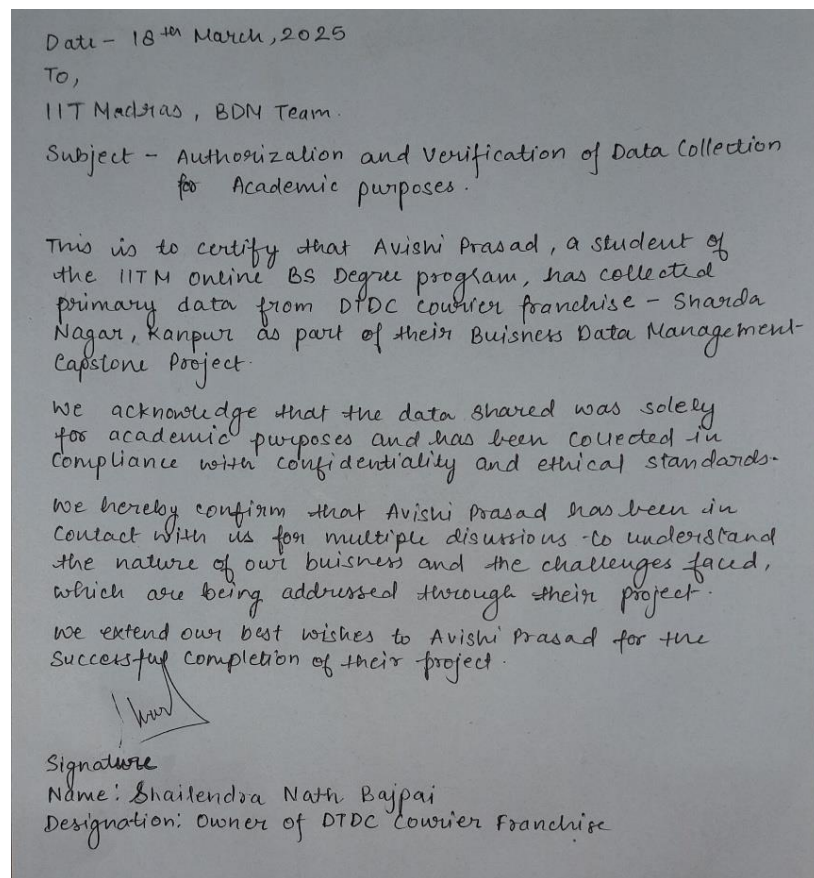 Date - 18th March, 2025
To,
IIT Madras, BDM Team.
Subject - Authorization and Verification of Data Collection
for Academic purposes.
This is to certify that Avishi Prasad, a student of
the IITM online BS Degree program, has collected
primary data from DTDC courier franchise - Sharda
Nagar, Kanpur as part of their Buisness Data Management
Capstone Project.
We acknowledge that the data shared was solely
for academic purposes and has been collected in
compliance with confidentiality and ethical standards.
We hereby confirm that Avishi Prasad has been in
contact with us for multiple disussions to understand
the nature of our buisness and the challenges faced,
which are being addressed through their project.
We extend our best wishes to Avishi Prasad for the
successful completion of their project.
Signature
Name: Shailendra Nath Bajpai
Designation: Owner of DTDC Courier Franchise